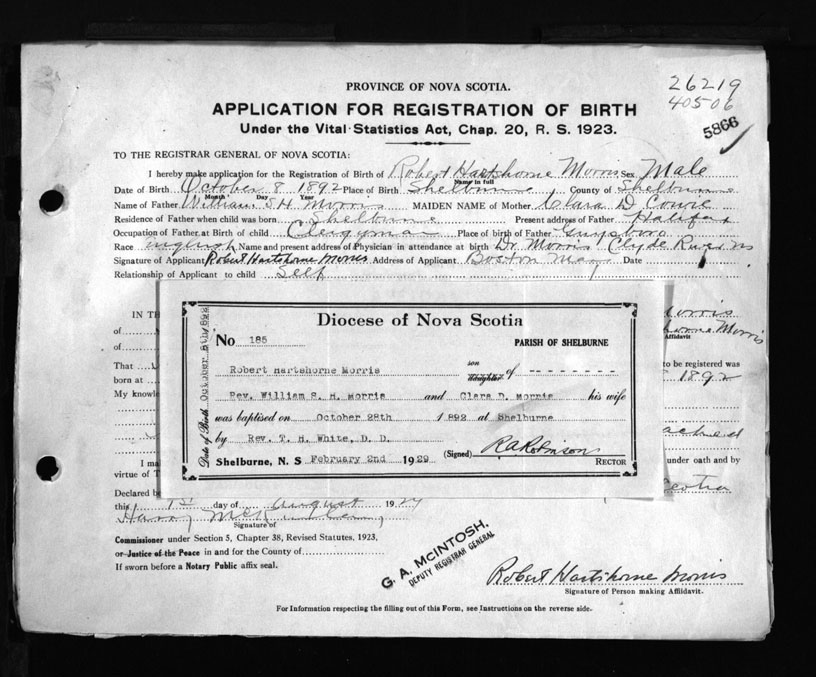 PROVINCE OF NOVA SCOTIA.
26219
40506
5866
APPLICATION FOR REGISTRATION OF BIRTH
Under the Vital Statistics Act, Chap. 20, R. S. 1923.
TO THE REGISTRAR GENERAL OF NOVA SCOTIA:
I hereby make application for the Registration of Birth of Robert Hartshorne Morris Sex Male
Name in full
Date of Birth October 8 1892 Place of Birth Shelburne County of Shelburne
Month Day Year
Name of Father William S H Morris MAIDEN NAME of Mother Clara D Cowie
Residence of Father when child was born Shelburne Present address of Father Halifax
Occupation of Father at Birth of child Clergyman Place of birth of Father Guysboro
Race english Name and present address of Physician in attendance at birth Dr Morris Clyde River NS
Signature of Applicant Robert Hartshorne Morris Address of Applicant Boston Mass Date
Relationship of Applicant to child Self
IN TH
of
of
Morris
Hartshorne Morris
Affidavit
That
to be registered was
born at
8 1892
My knowle
attached
I ma
under oath and by
virtue of T
Scotia
Diocese of Nova Scotia
No 185 PARISH OF SHELBURNE
Robert Hartshorne Morris son daughter of
Rev. William S. H. Morris and Clara D. Morris his wife
was baptised on October 28th 1892 at Shelburne
by Rev. T. H. White, D. D.
(Signed) R A Robinson
Shelburne, N. S February 2nd 1929 RECTOR
Date of Birth October 8th, 1892
Declared b
this 1st day of August 1929
Signature of
Commissioner under Section 5, Chapter 38, Revised Statutes, 1923,
or Justice of the Peace in and for the County of
If sworn before a Notary Public affix seal.
G. A. McINTOSH,
DEPUTY REGISTRAR GENERAL
Robert Hartshorne Morris
Signature of Person making Affidavit.
For Information respecting the filling out of this Form, see Instructions on the reverse side.